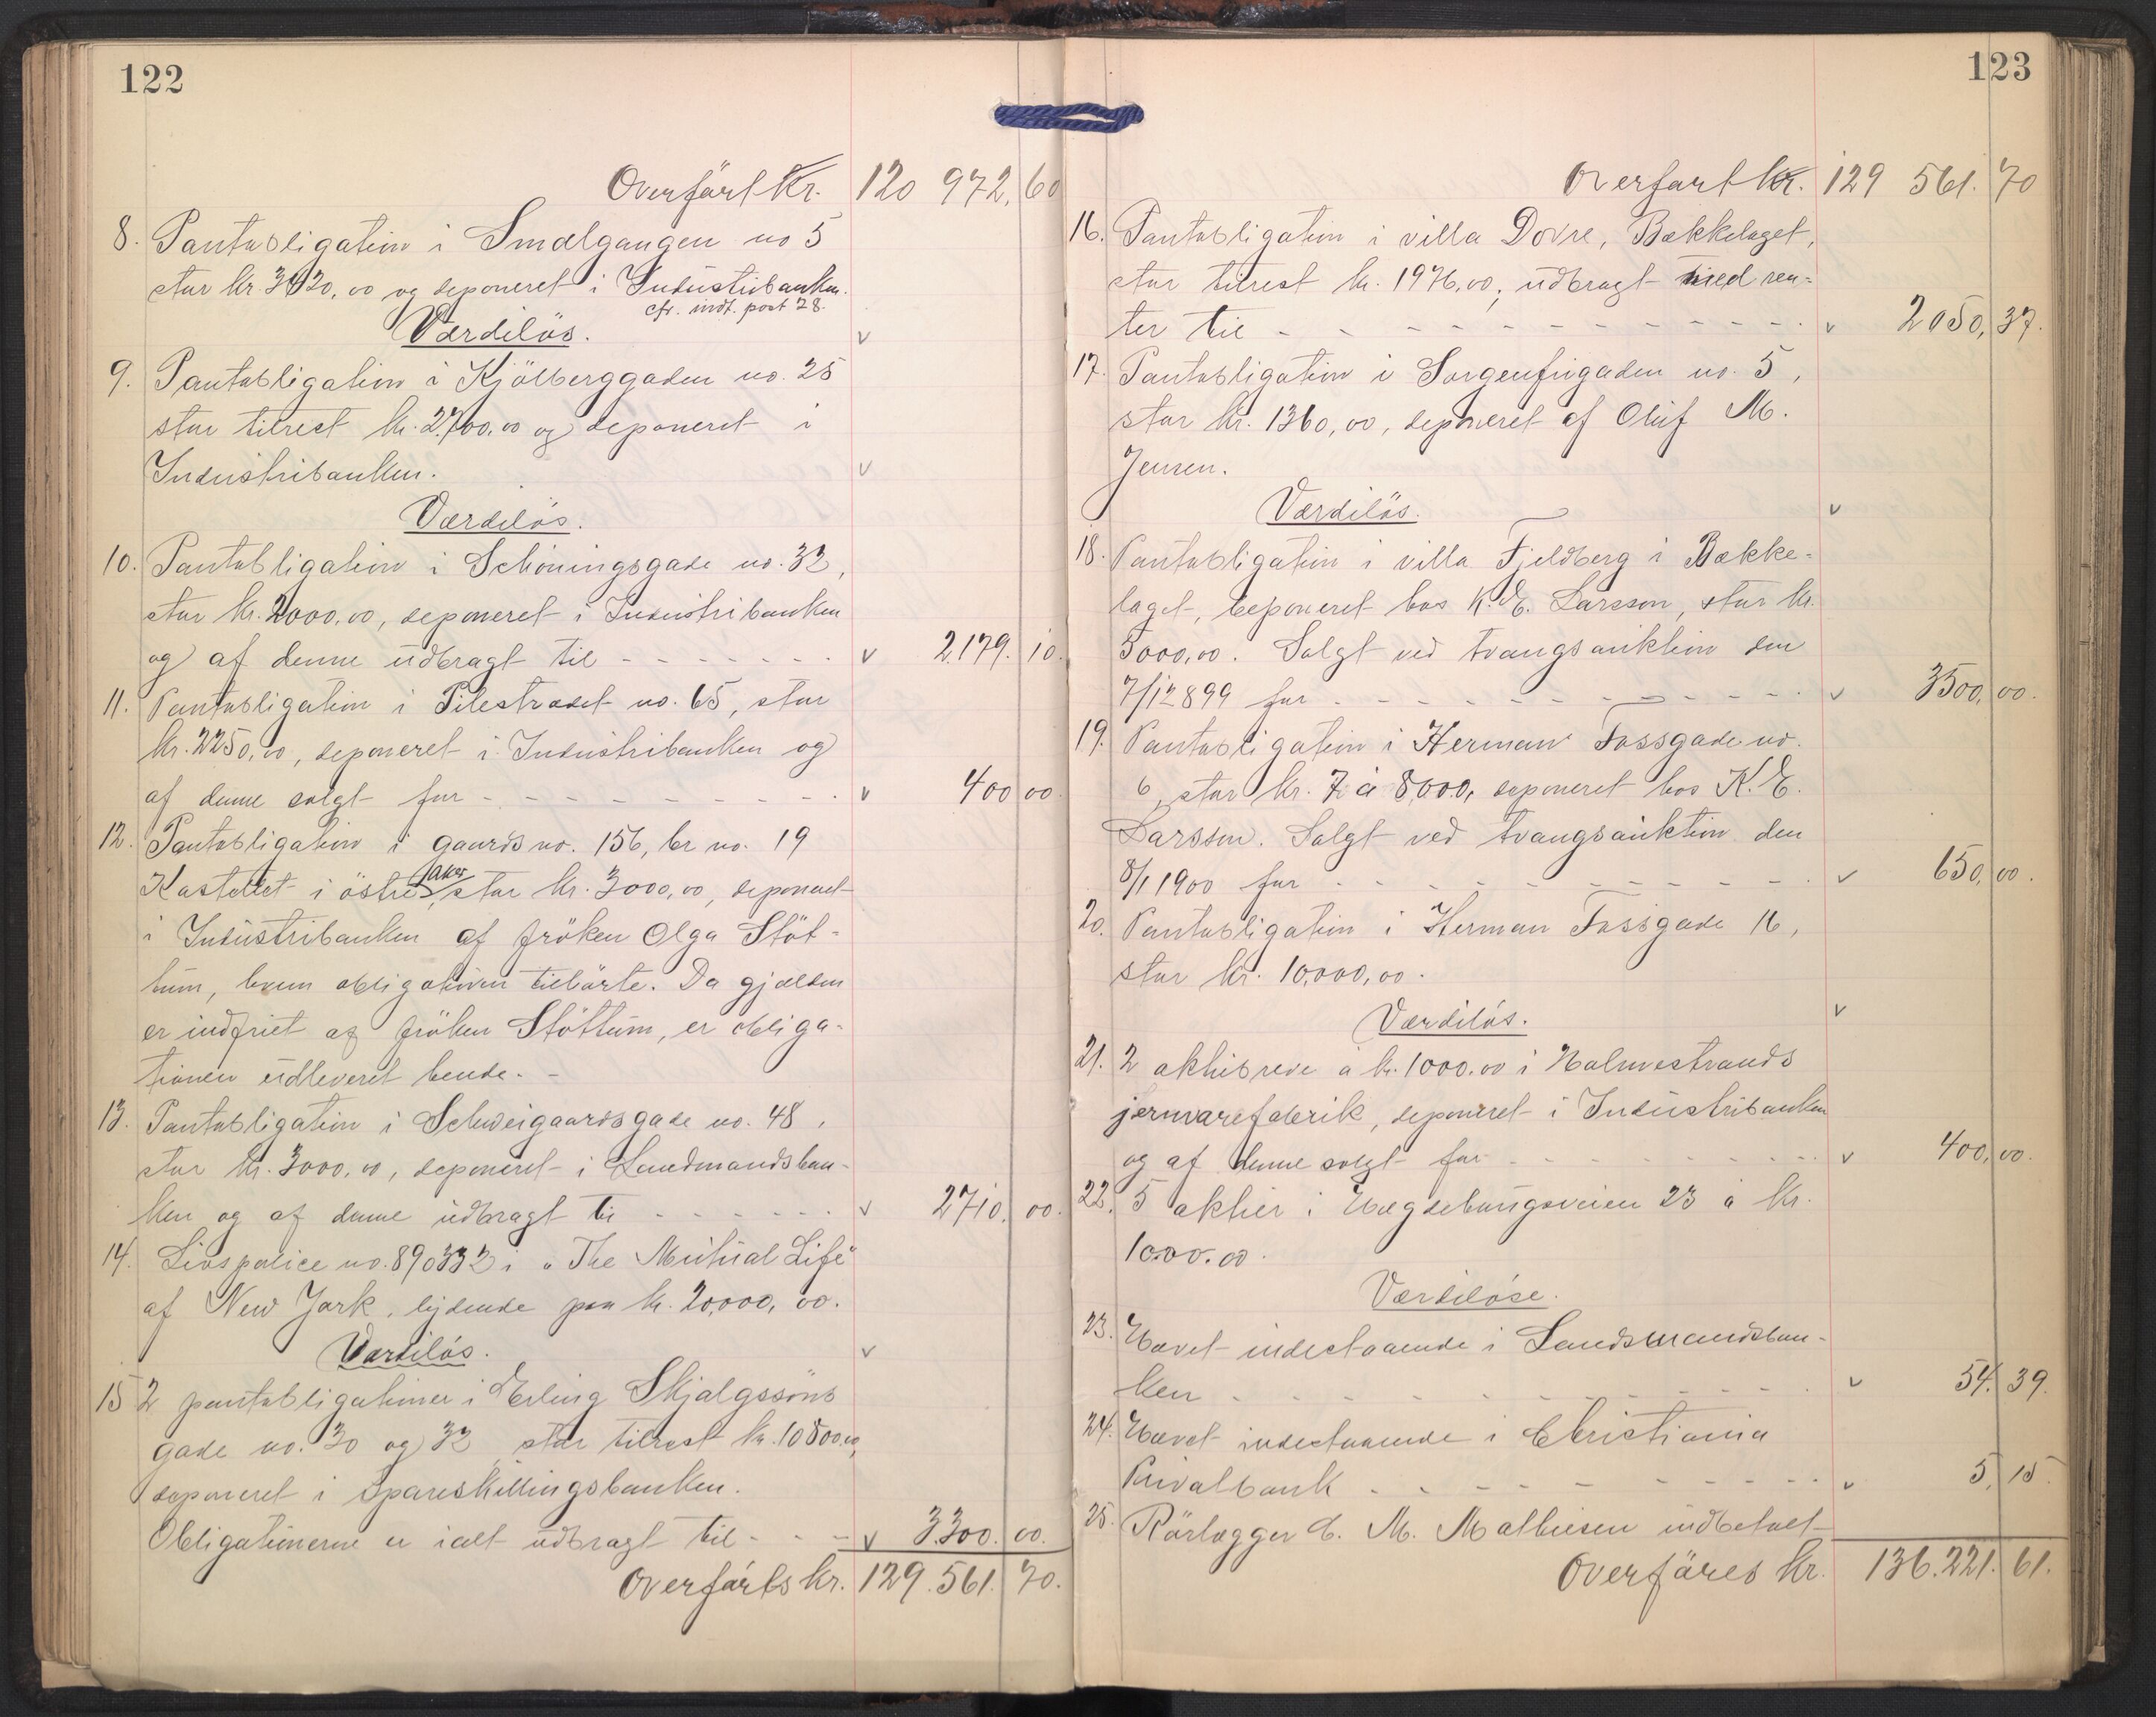 122
Overført Kr. 120 972,60
8. Pantobligation i Smalgangen no 5
stor kr. 3920,00 og deponeret i Industribanken.
cfr. indt. post 28.
Værdiløs. v
9. Pantobligation i Kjølberggaden no. 25
stor tilrest kr. 2700,00 og deponeret i
Industribanken. v
Værdiløs.
10. Pantobligation i Schøningsgade no. 32,
stor kr. 2000,00, deponeret i Industribanken
og af denne udbragt til - - - - - - - v 2179.10.
11. Pantobligation i Pilestrædet no. 65, stor
kr. 2250,00, deponeret i Industribanken og
af denne solgt for - - - - - - - - - - v 400 00.
12. Pantobligation i gaards no. 156, br no. 19
Kastellet i østre Aker, stor kr. 3000,00, deponeret
i Industribanken af frøken Olga Støt-
tum, hvem obligationen tilhørte. Da gjælden
er indfriet af frøken Støttum, er obliga-
tionen udleveret hende. -
13. Pantobligation i Schweigaardsgade no. 48,
stor kr. 3000,00, deponeret i Landmandsban-
ken og af denne udbragt til - - - - - - v 2710.00.
14. Livspolice no. 890332 i "The Mutual Life"
af New York, lydende paa kr. 20,000,00.
Værdiløs. v
15 2 pantobligationer i Erling Skjalgssøns
gade no. 30 og 32, stor tilrest kr. 10800.00,
deponeret i Spareskillingsbanken.
Obligationerne er ialt udbragt til - - - v 3300.00.
Overførts kr. 129.561.70.
123
Overført kr. 129 561.70
16. Pantobligation i villa Dovre, Bækkelaget,
stor tilrest kr. 1976,00, udbragt med ren-
ter til - - - - - - - - - - - - - - v 2050,37.
17. Pantobligation i Sorgenfrigaden no. 5,
stor kr. 1360,00, deponeret af Oluf M.
Jensen.
Værdiløs. v
18. Pantobligation i villa Fjeldberg i Bække-
laget, deponeret hos K. E. Larsson, stor kr.
5000,00. Solgt ved tvangsauktion den
7/12 899 for - - - - - - - - - - - - v 3500,00.
19. Pantobligation i Herman Fossgade no.
6, stor kr. 7 à 8000, deponeret hos K. E.
Larsson. Solgt ved tvangsauktion den
8/1 1900 for - - - - - - - - - - - v 650,00.
20. Pantobligation i Herman Fossgade 16,
stor kr. 10,000,00.
Værdiløs. v
21. 2 aktiebreve a kr. 1000.00 i Holmestrands
jernvarefabrik, deponeret i Industribanken
og af denne solgt for - - - - - - - - - v 400,00.
22. 5 aktier i Hægdehaugsveien 23 à kr.
1000.00.
Værdiløse.
23. Hævet indestaaende i Landsmandsban-
ken - - - - - - - - - - - - - v 54.39.
24. Hævet indestaaende i Christiania
Privatbank - - - - - - - - - - v 5,15.
25. Rørlægger C. M. Mathiesen indbetalt
Overføres kr. 136.221.61.